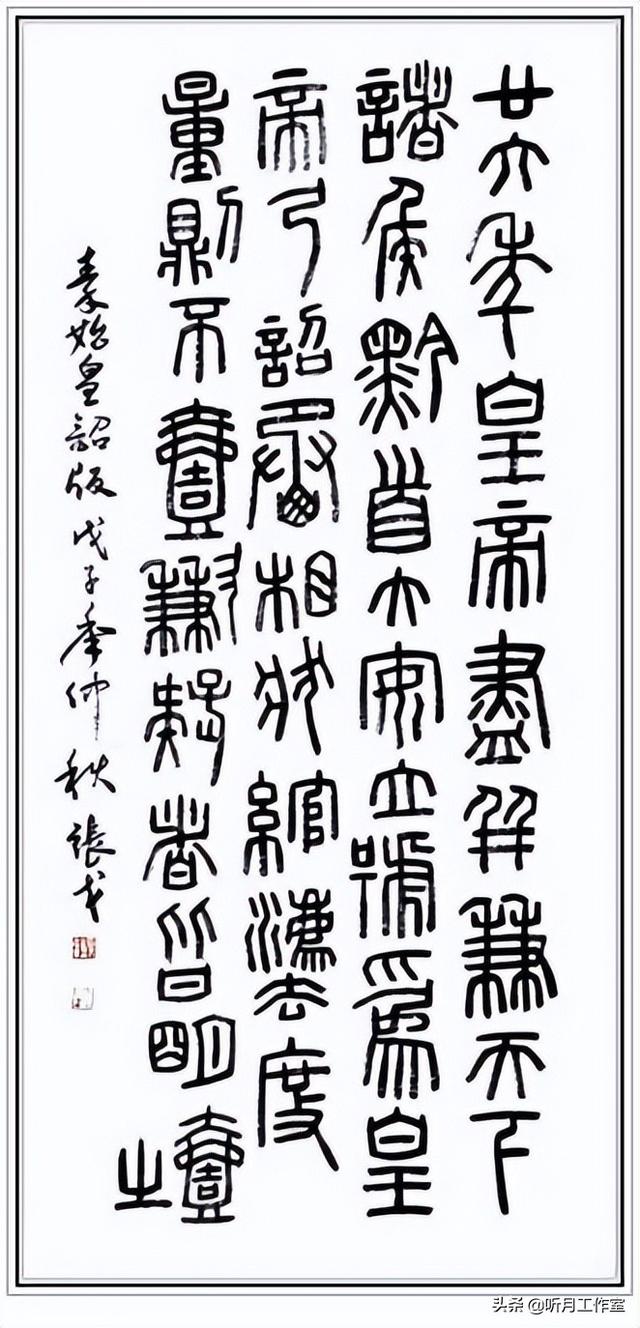 廿六年皇帝盡并兼天下
諸侯黔首大安立號為皇
帝乃詔丞相狀綰灋度
量則不壹歉疑者皆明壹之
秦始皇詔版 戊子年仲秋 張戈
头条 @听月工作室